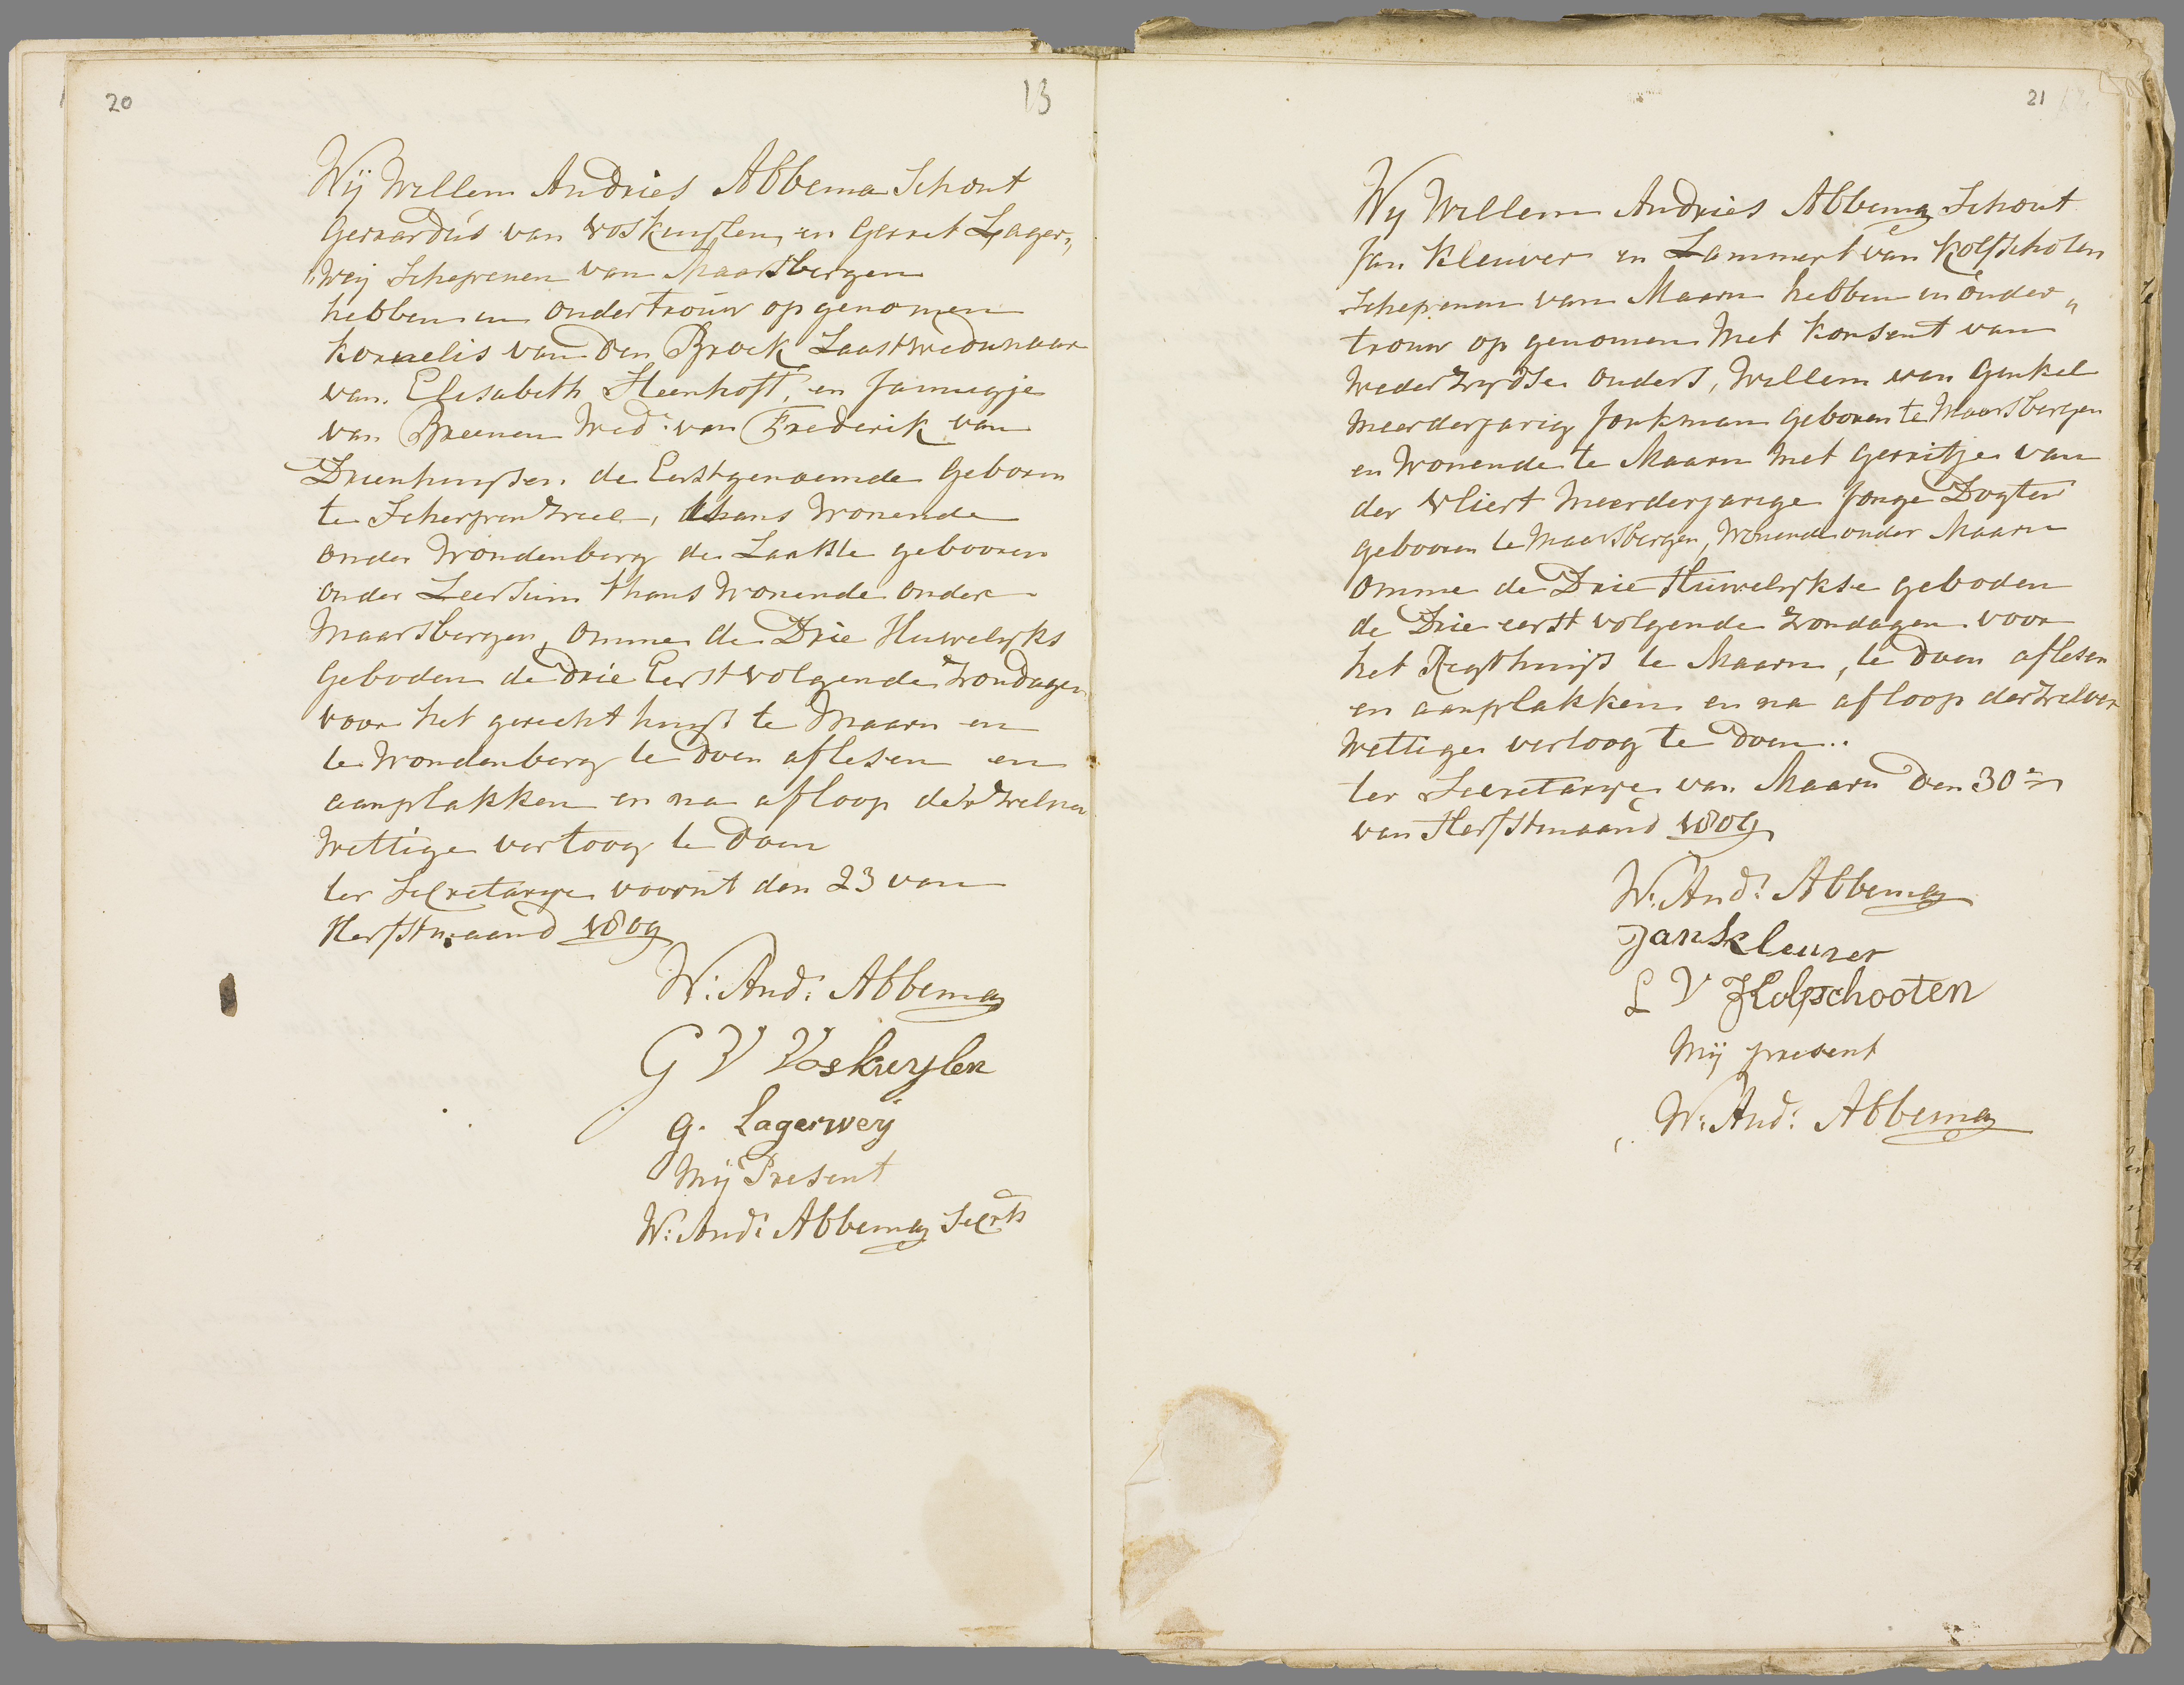 20
13
Wij Willem Andries Abbema Schout
Gerrardus van Voskuijlen, en Gerret Lager„
„weij Schepenen van Maarsbergen
hebben in ondertrouw opgenomen
Kornelis van den Broek Laast weduwnaar
van Elisabeth Steenhoft, en Jannigje
van Breenen Wed: van Frederik van
Drienhuysen. de Eerstgenoemde Geboren
te Scherpenzeel, thans Wonende
onder Woudenberg de Laatste gebooren
onder Leersum thans Wonende onder
Maarsbergen, omme de Drie Huwelyks
Geboden de Drie Eerstvolgende Zondagen
voor het gerecht huys te Maarn en
te Woudenberg te doen aflesen en
aanplakken en na afloop derzelver
Wettige vertoog te doen
ter Secretarye voornt den 23 van
Herfstmaand 1809
W: And: Abbema
G V Voskuylen
G. Lagerweij
Mij Present
W: And: Abbema Secrts
21
Wy Willem Andries Abbema Schout
Jan Kleuver en Lammert van Kolfschoten
Schepenen van Maarn hebben in onder„
trouw op genomen Met Konsent van
Wederzydse Ouders, Willem van Ginkel
Meerderjarig Jonkman Geboren te Maarsbergen
en Wonende te Maarn Met Gerritje van
der Vliert Meerderjarige Jonge Dogter
gebooren te Maarsbergen, Wonende onder Maarn
Omme de Drie Huwelykse geboden
de Drie eerst volgende Zondagen voor
het Regthuys te Maarn, te doen aflesen
en aanplakken en na afloop derzelver
Wettige vertoog te doen..
ter Secretarye van Maarn den 30en
van Herfstmaand 1809
W: And: Abbema
Jan Kleuver
L V Kolfschooten
Mij present
W: And: Abbema